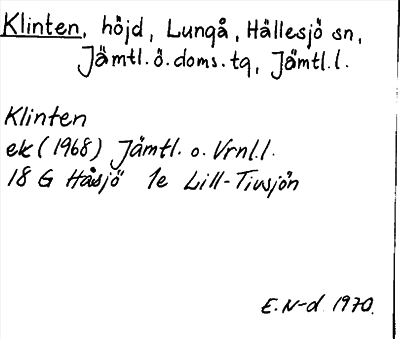 Klinten, höjd, Lungå, Hällesjö sn,
Jämtl. ö. doms. tg, Jämtl. l.
Klinten
ek (1968) Jämtl. o. Vrnl. l.
18 G Håsjö 1e Lill-Tivsjön
E. N-d. 1970.